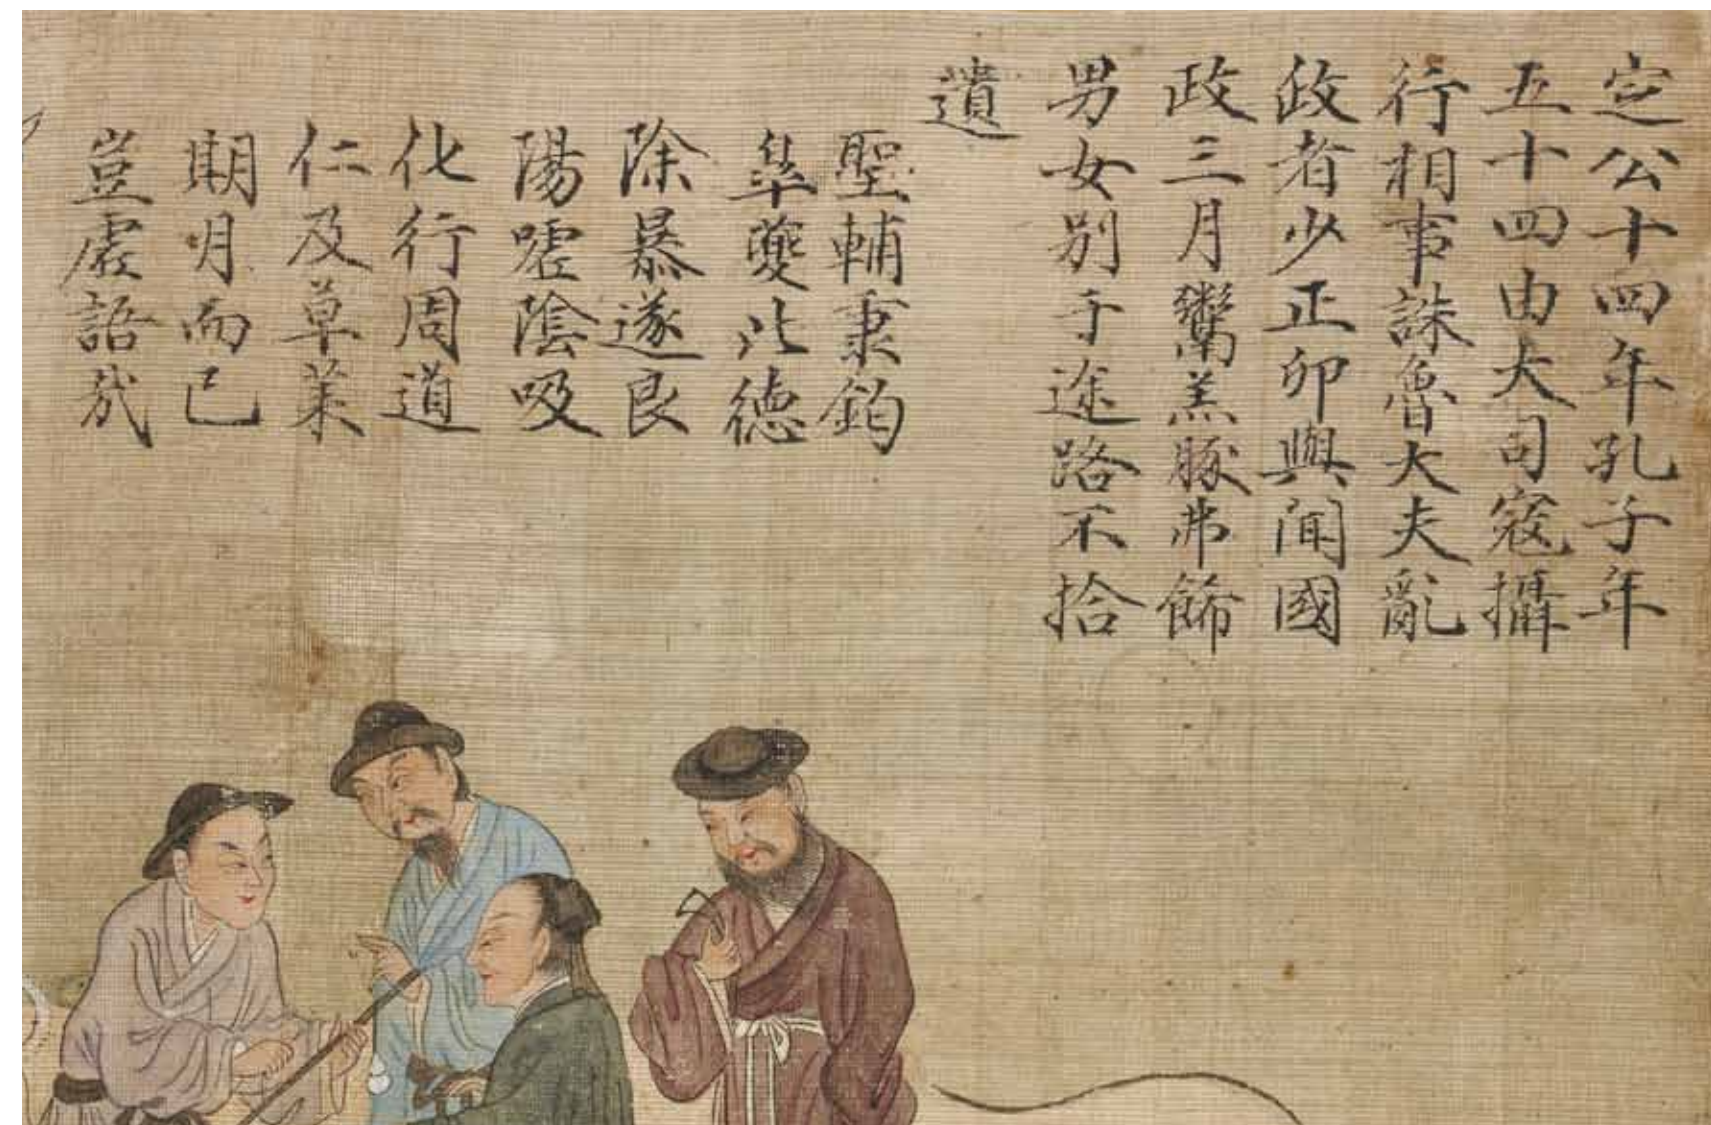 定公十四年孔子年
五十四由大司寇攝
行相事誅魯大夫亂
政者少正卯與聞國
政三月鬻羔豚弗飾
男女別于途路不拾
遺
聖輔秉鈞
皐夔比德
除暴遂良
陽噓陰吸
化行周道
仁及草萊
期月而已
豈虛語哉